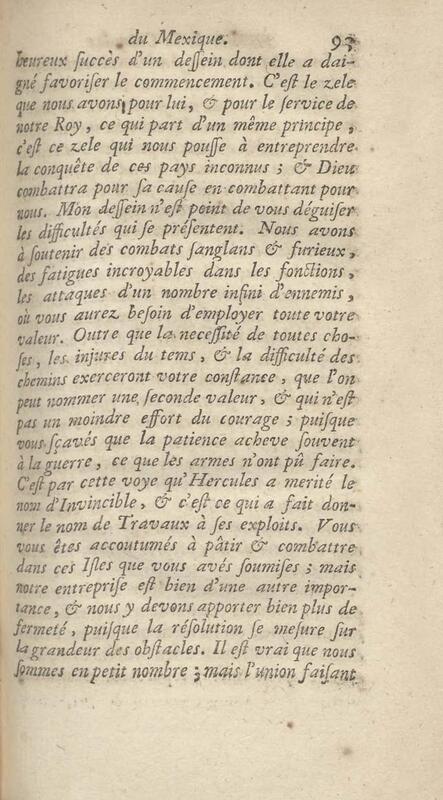 du Mexique. 93
heureux succès d'un deſſein dont elle a dai-
gné favoriſer le commencement. C'eſt le zele
que nous avons pour lui, & pour le ſervice de
notre Roy, ce qui part d'un même principe,
c'eſt ce zele qui nous pouſſe à entreprendre
la conquête de ces pays inconnus ; & Dieu
combattra pour ſa cauſe en combattant pour
nous. Mon deſſein n'eſt point de vous déguiſer
les difficultés qui ſe préſentent. Nous avons
à ſoutenir des combats ſanglans & furieux,
des fatigues incroyables dans les fonctions,
les attaques d'un nombre infini d'ennemis,
où vous aurez beſoin d'employer toute votre
valeur. Outre que la neceſſité de toutes cho-
ſes, les injures du tems, & la difficulté des
chemins exerceront votre conſtance, que l'on
peut nommer une ſeconde valeur, & qui n'eſt
pas un moindre effort du courage ; puiſque
vous ſçavés que la patience acheve ſouvent
à la guerre, ce que les armes n'ont pû faire.
C'eſt par cette voye qu'Hercules a merité le
nom d'Invincible, & c'eſt ce qui a fait don-
ner le nom de Travaux à ſes exploits. Vous
vous êtes accoutumés à pâtir & combattre
dans ces Iſles que vous avés ſoumiſes ; mais
notre entrepriſe eſt bien d'une autre impor-
tance, & nous y devons apporter bien plus de
fermeté, puiſque la réſolution ſe meſure ſur
la grandeur des obſtacles. Il eſt vrai que nous
ſommes en petit nombre ; mais l'union faiſant